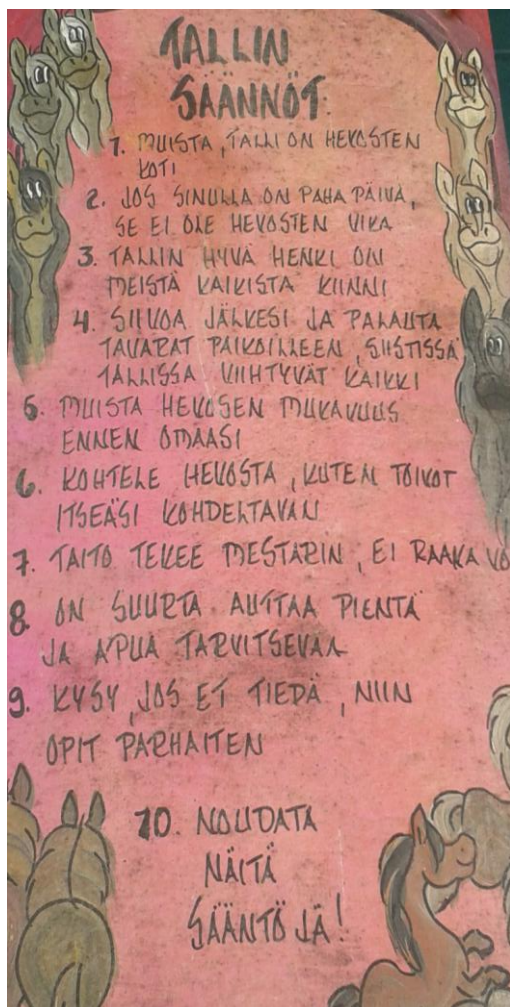 TALLIN
SÄÄNNÖT:
1. MUISTA, TALLI ON HEVOSTEN
KOTI
2. JOS SINULLA ON PAHA PÄIVÄ,
SE EI OLE HEVOSTEN VIKA
3. TALLIN HYVÄ HENKI ON
MEISTÄ KAIKISTA KIINNI
4. SIIVOA JÄLKESI JA PALAUTA
TAVARAT PAIKOILLEEN, SIISTISSÄ
TALLISSA VIIHTYVÄT KAIKKI
5. MUISTA HEVOSEN MUKAVUUS
ENNEN OMAASI
6. KOHTELE HEVOSTA, KUTEN TOIVOT
ITSEÄSI KOHDELTAVAN
7. TAITO TEKEE MESTARIN, EI RAAKA VO
8. ON SUURTA AUTTAA PIENTÄ
JA APUA TARVITSEVAA
9. KYSY, JOS ET TIEDÄ, NIIN
OPIT PARHAITEN
10. NOUDATA
NÄITÄ
SÄÄNTÖJÄ!